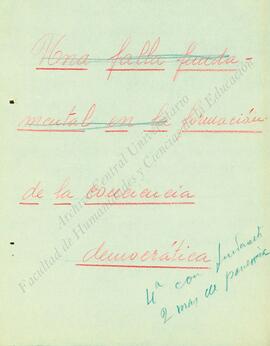 Una falla funda-
mental en la formación
de la conciencia
democrática
4ª con
2 mas de
Archivo Central Universitario
Facultad de Humanidades y Ciencias de la Educación